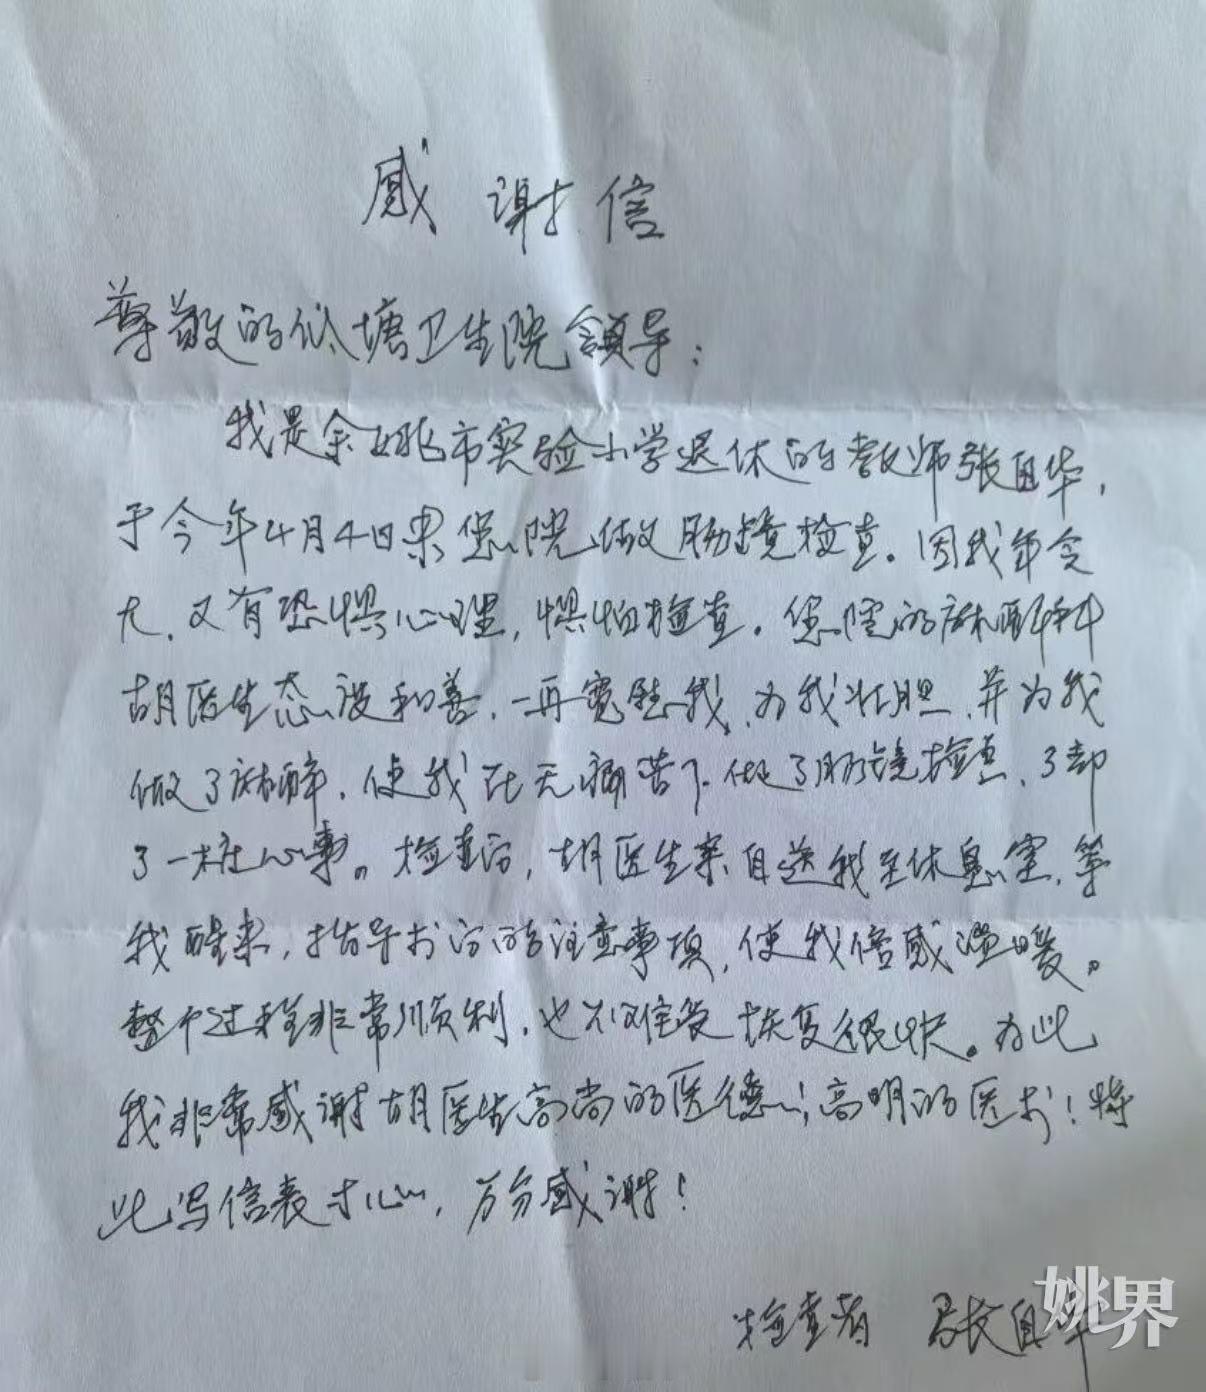 感谢信
尊敬的低塘卫生院领导：
我是余姚市实验小学退休的教师张自华，
于今年4月4日来您院做肠镜检查。因我年令
大，又有恐惧心理，惧怕检查。您院的麻醉科
胡医生态度和善，一再宽慰我，为我壮胆，并为我
做了麻醉，使我在无痛苦下做了肠镜检查，了却
了一桩心事。检查后，胡医生亲自送我至休息室，等
我醒来，指导术后的注意事项，使我倍感温暖。
整个过程非常顺利，也不难受恢复很快。为此
我非常感谢胡医生高尚的医德！高明的医术！特
此写信表寸心，万分感谢！
检查者 张自华
姚界